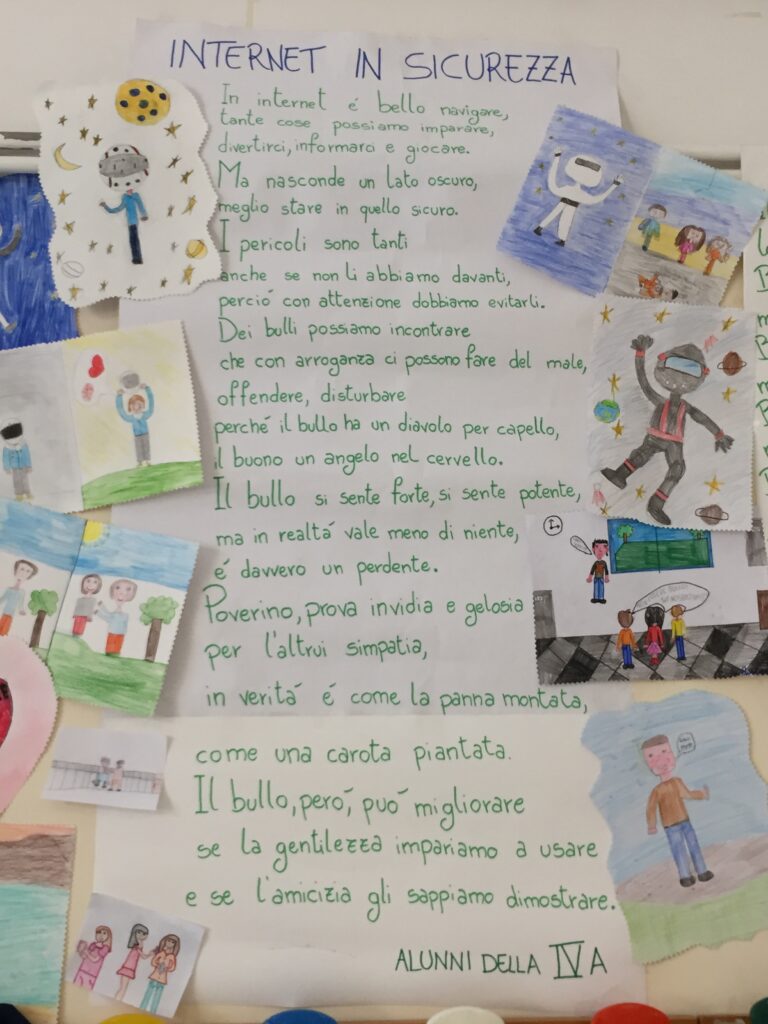 INTERNET IN SICUREZZA
In internet é bello navigare,
tante cose possiamo imparare,
divertirci, informarci e giocare.
Ma nasconde un lato oscuro,
meglio stare in quello sicuro.
I pericoli sono tanti
anche se non li abbiamo davanti,
perció con attenzione dobbiamo evitarli.
Dei bulli possiamo incontrare
che con arroganza ci possono fare del male,
offendere, disturbare
perché il bullo ha un diavolo per capello,
il buono un angelo nel cervello.
Il bullo si sente forte, si sente potente,
ma in realtá vale meno di niente,
é davvero un perdente.
Poverino, prova invidia e gelosia
per l'altrui simpatia,
in veritá é come la panna montata,
come una carota piantata.
Il bullo, peró, puó migliorare
se la gentilezza impariamo a usare
e se l'amicizia gli sappiamo dimostrare.
ALUNNI DELLA IV A